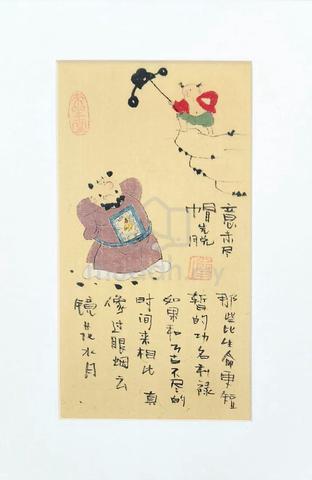 意未尽
帽先脱
那些比生命更短
暂的功名利禄
如果和万古不尽的
时间来相比 真
像过眼烟云
镜花水月
mudah.my